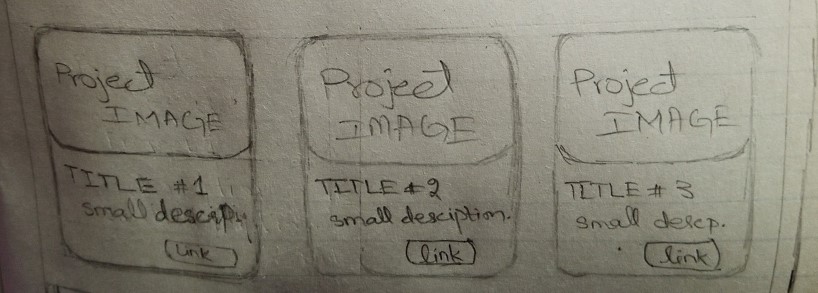 Project
IMAGE
TITLE #1
small descrip
Link
Project
IMAGE
TITLE #2
small desciption.
link
Project
IMAGE
TITLE # 3
small descp.
link